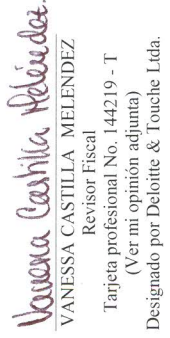 Vanessa Castilla Meléndez.
VANESSA CASTILLA MELENDEZ
Revisor Fiscal
Tarjeta profesional No. 144219 - T
(Ver mi opinión adjunta)
Designado por Deloitte & Touche Ltda.